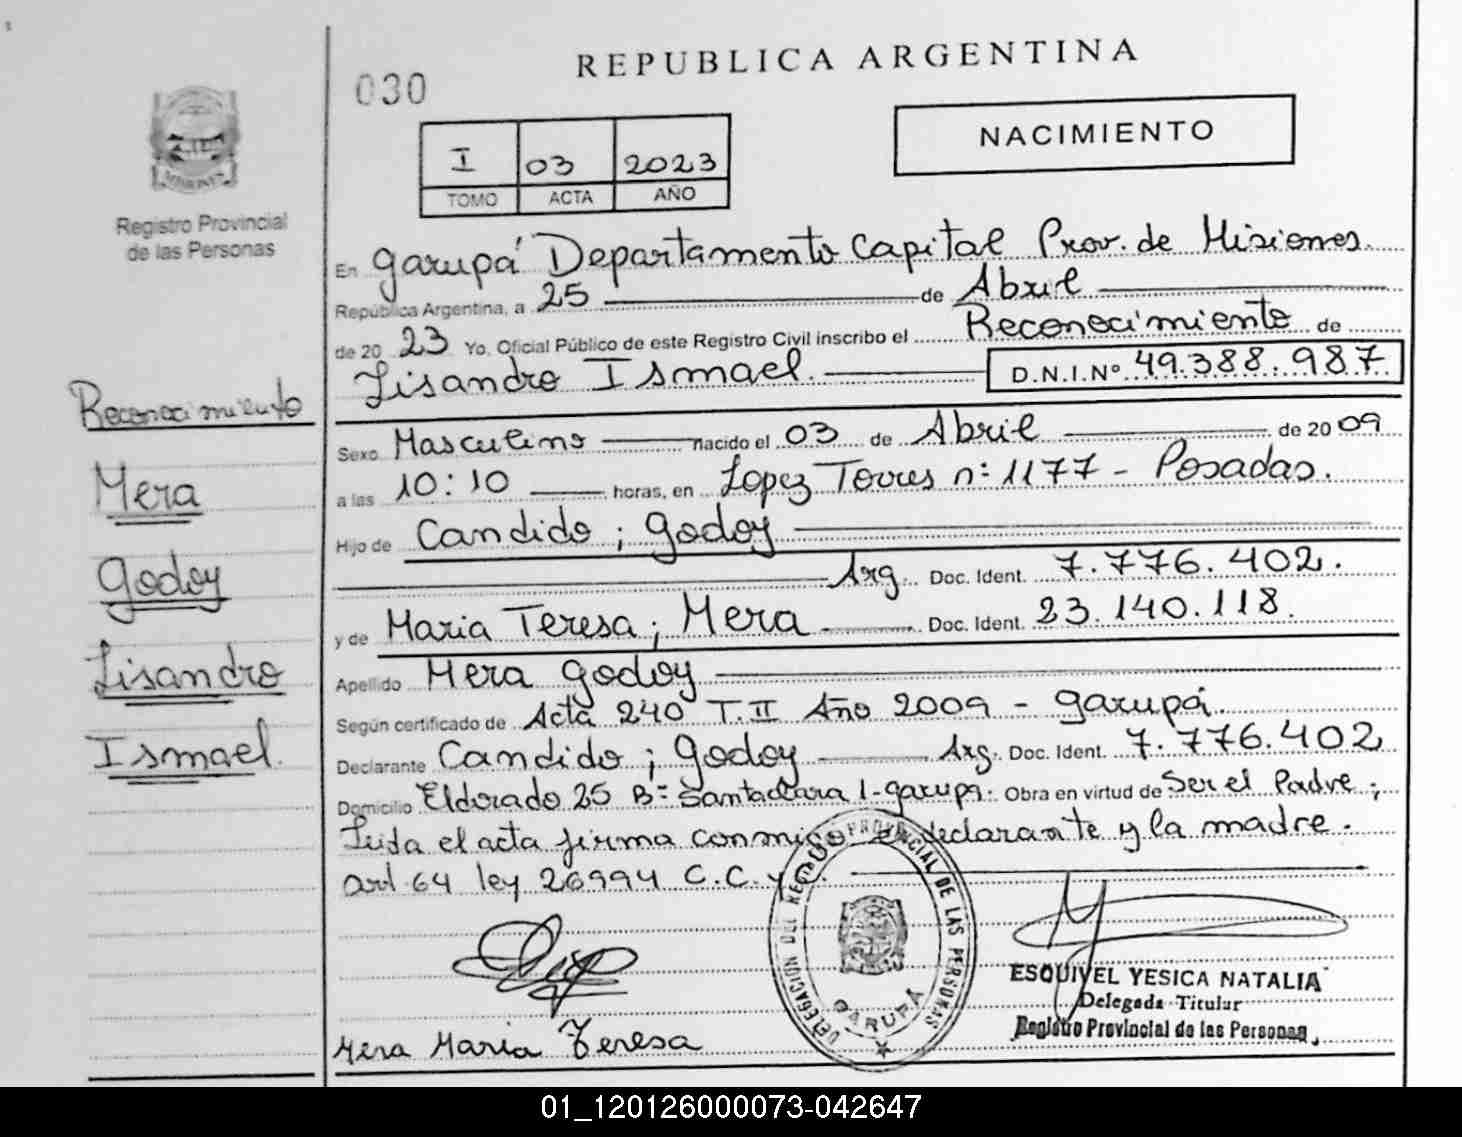 REPUBLICA ARGENTINA
030
NACIMIENTO
I 03 2023
TOMO ACTA AÑO
MISIONES
Registro Provincial
de las Personas
En Garupá Departamento Capital Prov. de Misiones
República Argentina, a 25 de Abril
de 20 23 Yo, Oficial Público de este Registro Civil inscribo el Reconocimiento de
Lisandro Ismael. D.N.I.Nº 49.388.987
Reconocimiento
Mera
Godoy
Lisandro
Ismael.
Sexo Masculino nacido el 03 de Abril de 20 09
a las 10:10 horas, en Lopez Torres nº 1177 - Posadas.
Hijo de Candido ; Godoy
Arg. Doc. Ident. 7.776.402.
y de Maria Teresa ; Mera Doc. Ident. 23.140.118.
Apellido Mera Godoy
Según certificado de Acta 240 T. II Año 2009 - Garupá.
Declarante Candido ; Godoy Arg. Doc. Ident. 7.776.402
Domicilio Eldorado 25 Bº Santa Clara 1 - Garupa. Obra en virtud de Ser el Padre ;
Leida el acta firma conmigo declarante y la madre.
art. 64 ley 26994 C.C.
DELEGACION DEL REGISTRO PROVINCIAL DE LAS PERSONAS
GARUPÁ
ESQUIVEL YESICA NATALIA
Delegada Titular
Registro Provincial de las Personas
Mera Maria Teresa
01_120126000073-042647